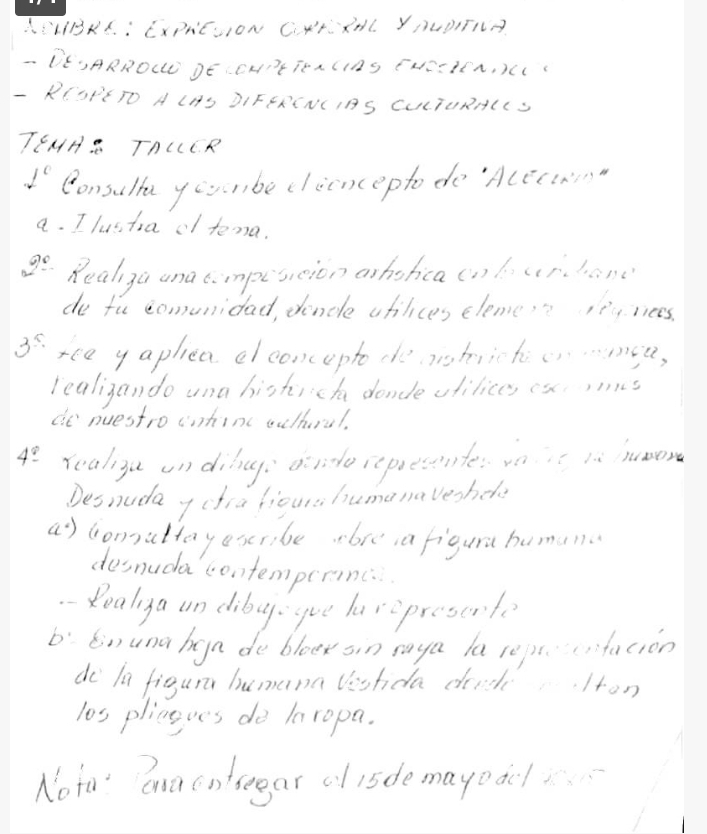 1/1
NOMBRE: EXPRESION CORPORAL Y AUDITIVA
- DESARROLLO DE COMPETENCIAS
- RESPETO A LAS DIFERENCIAS CULTURALES
TEMA: TALLER
1° Consulta y escribe el concepto de
a. Ilustra el tema.
2° Realiza una composición artistica en
de tu comunidad, donde utilices
3° Lee y aplica el concepto de historieta
realizando una historieta donde utilices
de nuestro entorno cultural.
4° realiza un dibujo donde representes humana
Desnuda y otra figura humana vestida
a) Consulta y escribe sobre la figura humana
desnuda contemporanea.
- Realiza un dibujo que la represente
b. En una hoja de block sin raya la representación
de la figura humana vestida donde
los pliegues de la ropa.
Nota: Para entregar el 15 de mayo del